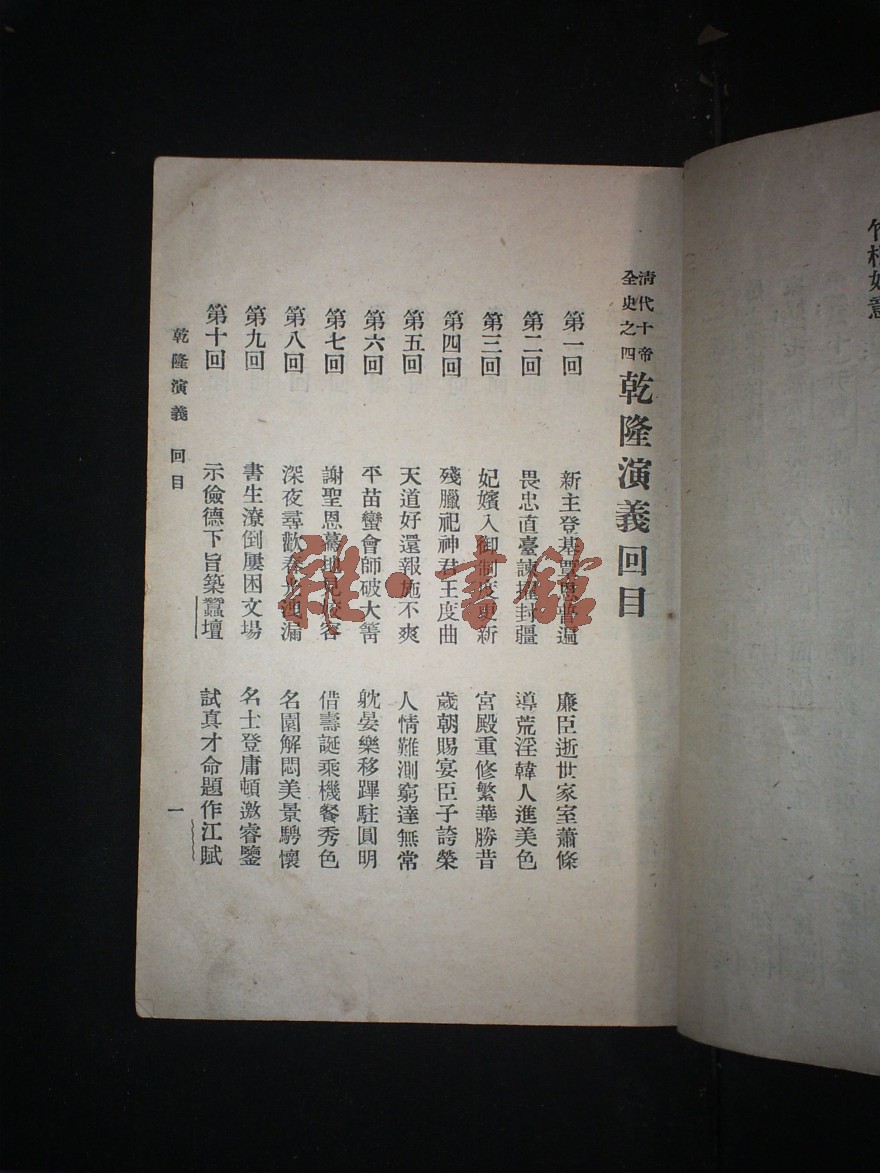 清代十帝
全史之四
乾隆演義回目
第一回 新主登基覃恩普遍 廉臣逝世家室蕭條
第二回 畏忠直臺諫擢封疆 導荒淫韓人進美色
第三回 妃嬪入御制度更新 宮殿重修繁華勝昔
第四回 殘臘祀神君王度曲 歲朝賜宴臣子誇榮
第五回 天道好還報施不爽 人情難測窮達無常
第六回 平苗蠻會師破大箐 躭晏樂移蹕駐圓明
第七回 謝聖恩驀地見姣容 借壽誕乘機餐秀色
第八回 深夜尋歡春光洩漏 名園解悶美景騁懷
第九回 書生潦倒屢困文場 名士登庸頓邀睿鑒
第十回 示儉德下旨築蠶壇 試真才命題作江賦
乾隆演義 回目 一
雅·書館